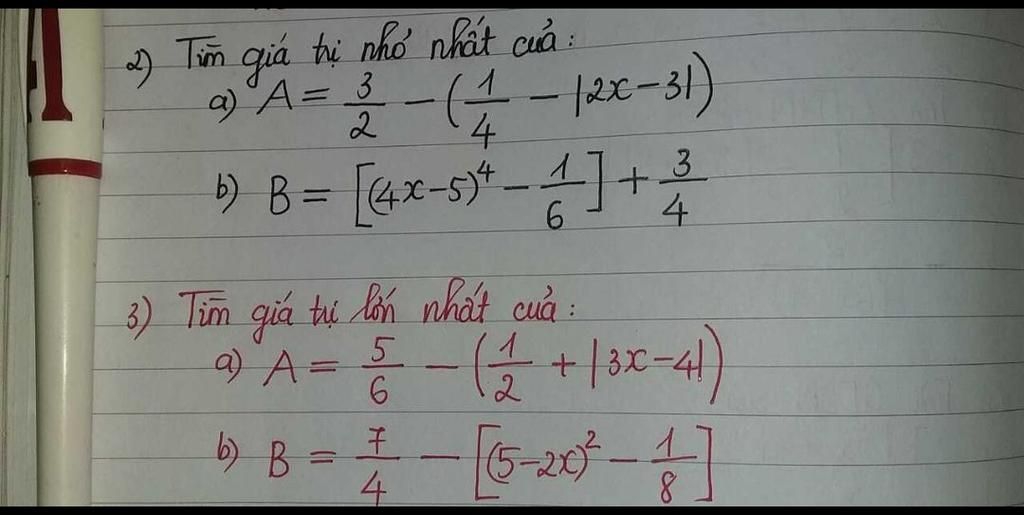 2) Tìm giá trị nhỏ nhất của:
a) A = 3/2 - (1/4 - |2x-3|)
b) B = [(4x-5)^4 - 1/6] + 3/4
3) Tìm giá trị lớn nhất của:
a) A = 5/6 - (1/2 + |3x-4|)
b) B = 7/4 - [(5-2x)^2 - 1/8]